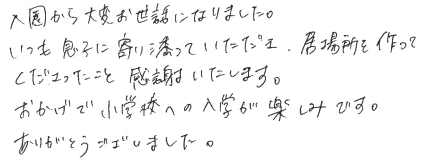 入園から大変お世話になりました。
いつも息子に寄り添っていただき、居場所を作って
くださったこと感謝いたします。
おかげで小学校への入学が楽しみです。
ありがとうございました。